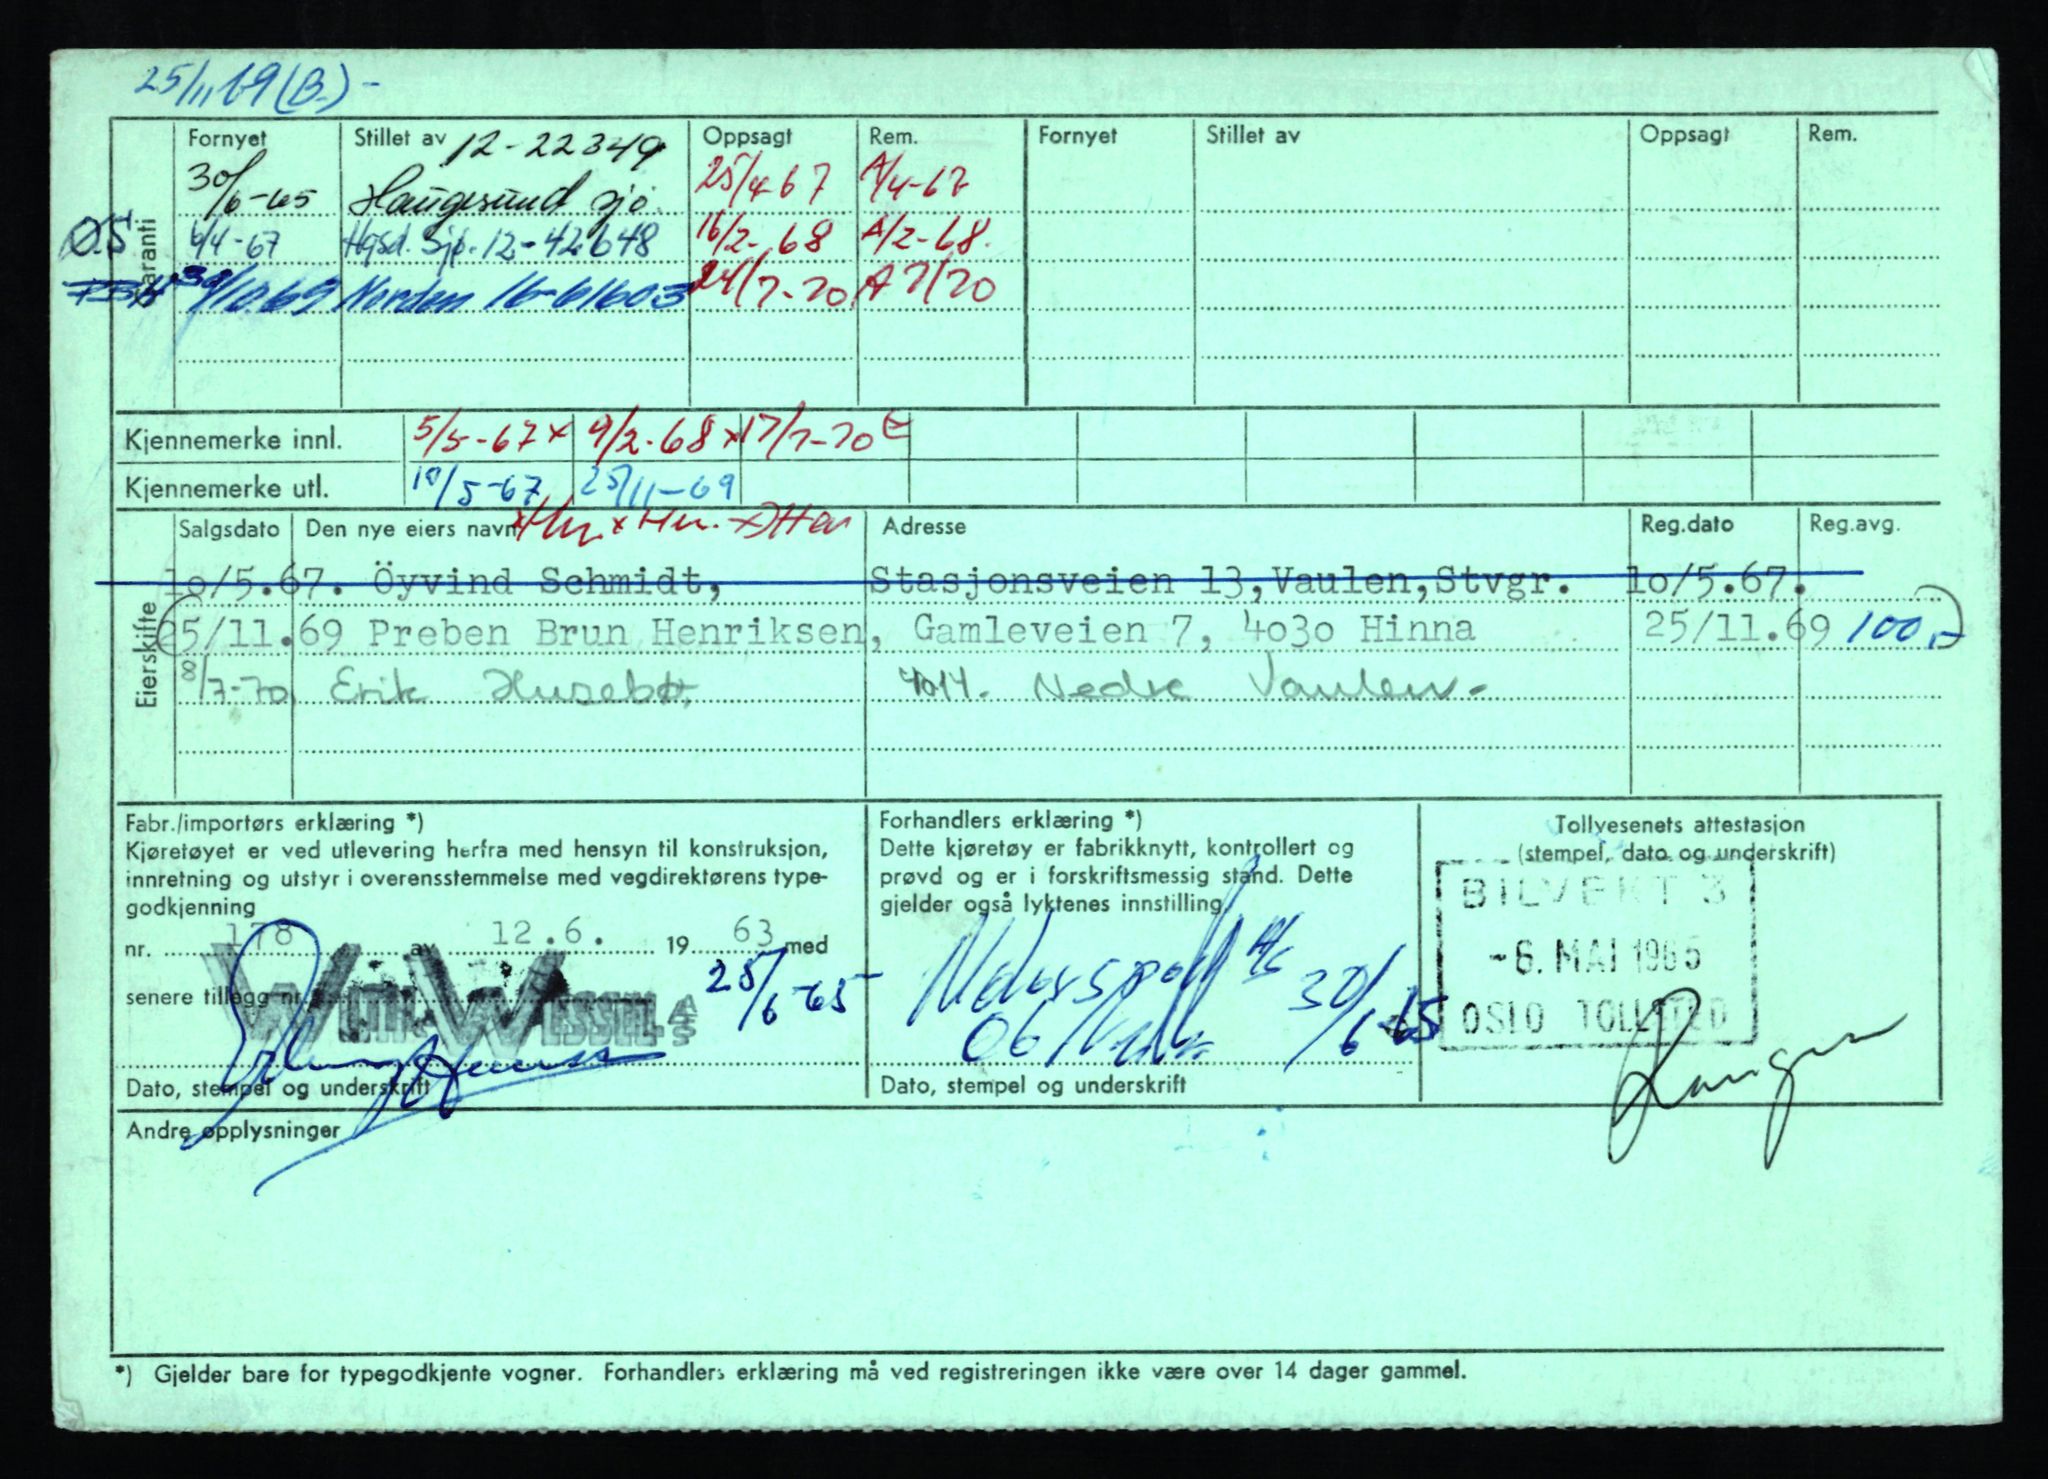 25/11 69 (B.) -
Fornyet Stillet av 12-22349 Oppsagt Rem. Fornyet Stillet av Oppsagt Rem.
30/6-65 Haugesund Sjø. 25/4-67 A/4-67
Ø.S 6/4-67 Hgsd. Sjø. 12-42648 16/2-68 A/2-68.
30/10.69 Norden 16-61603 24/7-70 A 7/70
Garanti
Kjennemerke innl. 5/5-67 x 9/2-68 x 17/7-70
Kjennemerke utl. 10/5-67 25/11-69
Salgsdato Den nye eiers navn Adresse Reg.dato Reg.avg.
10/5.67. Öyvind Schmidt, Stasjonsveien 13, Vaulen, Stvgr. 10/5.67.
25/11.69 Preben Brun Henriksen, Gamleveien 7, 4030 Hinna 25/11.69 100,-
8/7-70 Erik Husebø, 4014. Nedre Vaulen.
Eierskifte
Fabr./importørs erklæring *)
Kjøretøyet er ved utlevering herfra med hensyn til konstruksjon,
innretning og utstyr i overensstemmelse med vegdirektørens type-
godkjenning
nr. 178 av 12.6. 19 63 med
senere tillegg nr. 25/6-65
Dato, stempel og underskrift
Forhandlers erklæring *)
Dette kjøretøy er fabrikknytt, kontrollert og
prøvd og er i forskriftsmessig stand. Dette
gjelder også lyktenes innstilling.
A/S 30/6-65
Dato, stempel og underskrift
Tollvesenets attestasjon
(stempel, dato og underskrift)
BILVEKT 3
-6. MAI 1965
OSLO TOLLSTED
Andre opplysninger
*) Gjelder bare for typegodkjente vogner. Forhandlers erklæring må ved registreringen ikke være over 14 dager gammel.